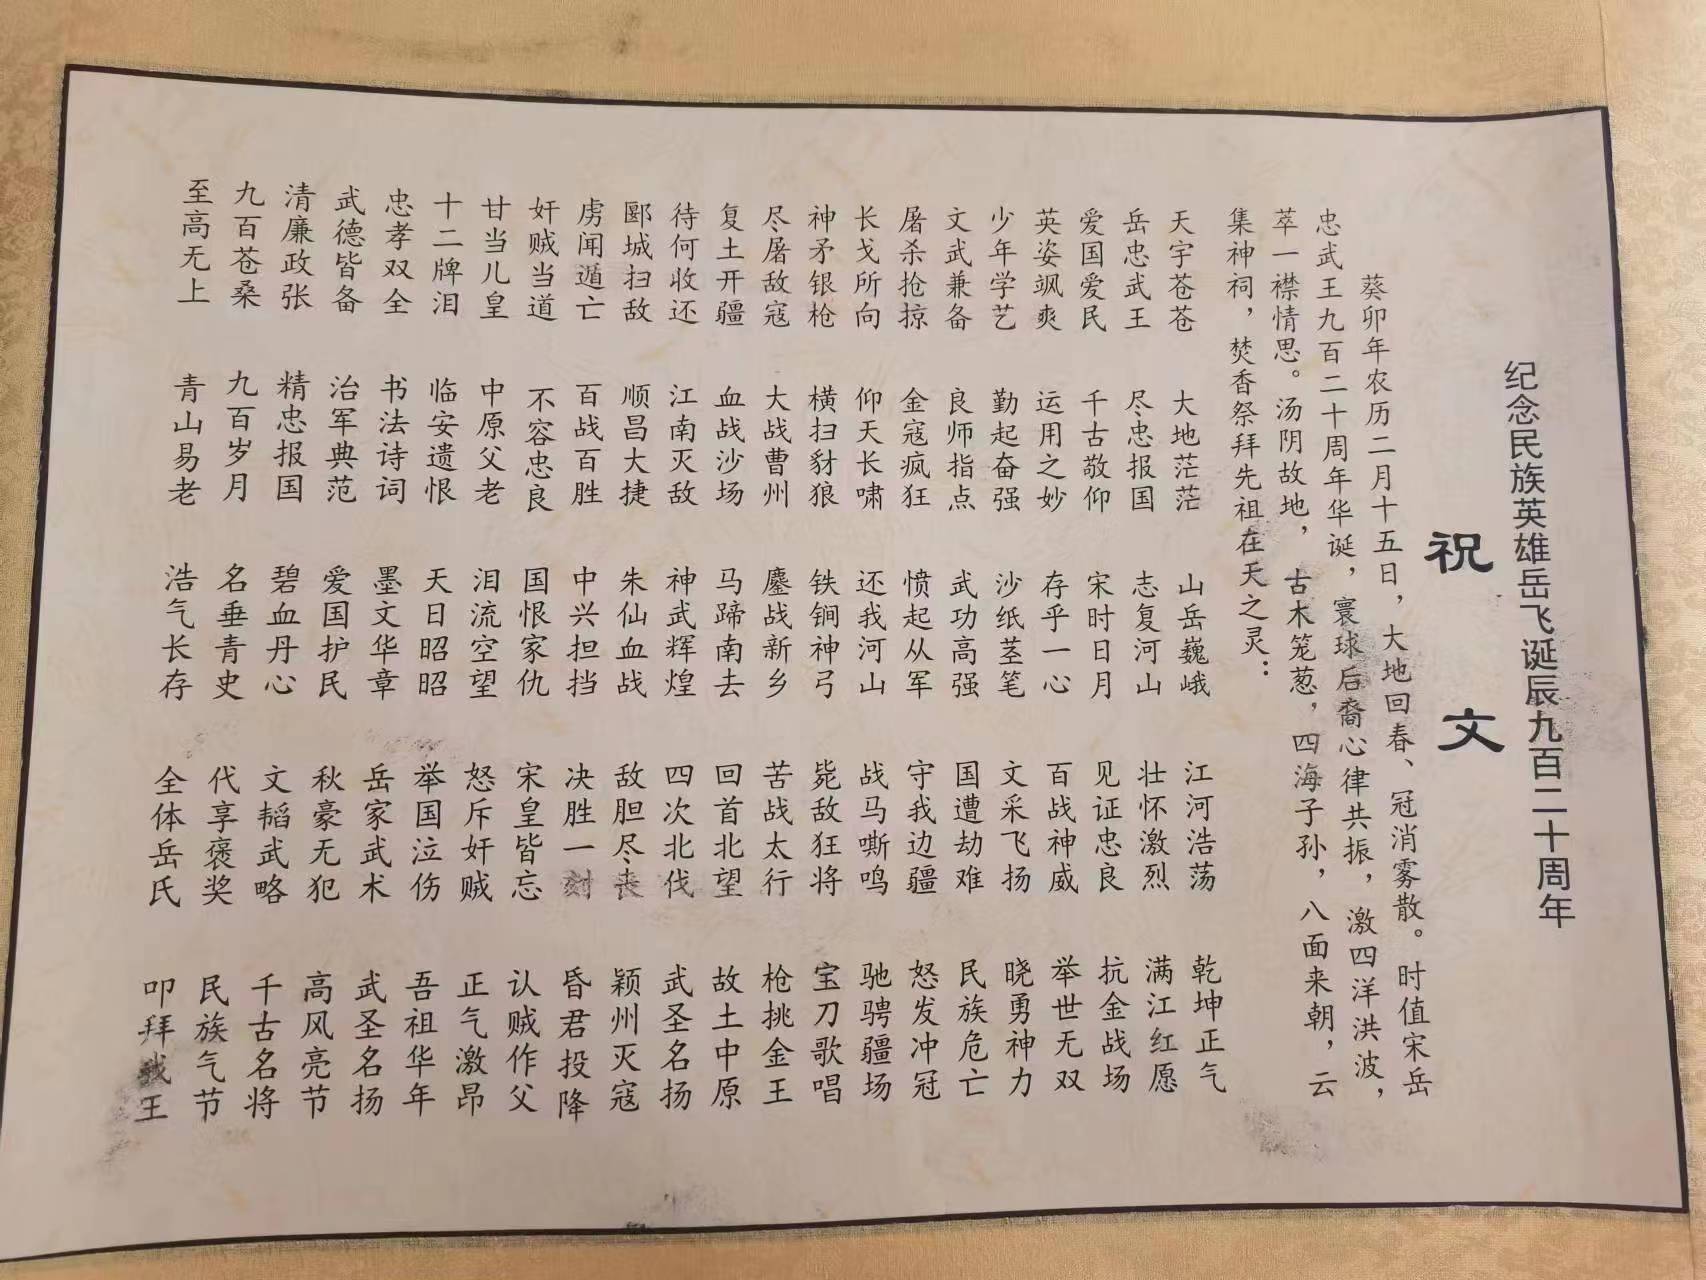 纪念民族英雄岳飞诞辰九百二十周年
祝文
葵卯年农历二月十五日，大地回春、冠消雾散。时值宋岳
忠武王九百二十周年华诞，寰球后裔心律共振，激四洋洪波，
萃一襟情思。汤阴故地，古木笼葱，四海子孙，八面来朝，云
集神祠，焚香祭拜先祖在天之灵：
天宇苍苍 大地茫茫 山岳巍峨 江河浩荡 乾坤正气
岳忠武王 尽忠报国 志复河山 壮怀激烈 满江红愿
爱国爱民 千古敬仰 宋时日月 见证忠良 抗金战场
英姿飒爽 运用之妙 存乎一心 百战神威 举世无双
少年学艺 勤起奋强 沙纸茎笔 文采飞扬 晓勇神力
文武兼备 良师指点 武功高强 国遭劫难 民族危亡
屠杀抢掠 金寇疯狂 愤起从军 守我边疆 怒发冲冠
长戈所向 仰天长啸 还我河山 战马嘶鸣 驰骋疆场
神矛银枪 横扫豺狼 铁锏神弓 毙敌狂将 宝刀歌唱
尽屠敌寇 大战曹州 鏖战新乡 苦战太行 枪挑金王
复土开疆 血战沙场 马蹄南去 回首北望 故土中原
待何收还 江南灭敌 神武辉煌 四次北伐 武圣名扬
郾城扫敌 顺昌大捷 朱仙血战 敌胆尽丧 颖州灭寇
虏闻遁亡 百战百胜 中兴担挡 决胜一刻 昏君投降
奸贼当道 不容忠良 国恨家仇 宋皇皆忘 认贼作父
甘当儿皇 中原父老 泪流空望 怒斥奸贼 正气激昂
十二牌泪 临安遗恨 天日昭昭 举国泣伤 吾祖华年
忠孝双全 书法诗词 墨文华章 岳家武术 武圣名扬
武德皆备 治军典范 爱国护民 秋豪无犯 高风亮节
清廉政张 精忠报国 碧血丹心 文韬武略 千古名将
九百苍桑 九百岁月 名垂青史 代享褒奖 民族气节
至高无上 青山易老 浩气长存 全体岳氏 叩拜我王